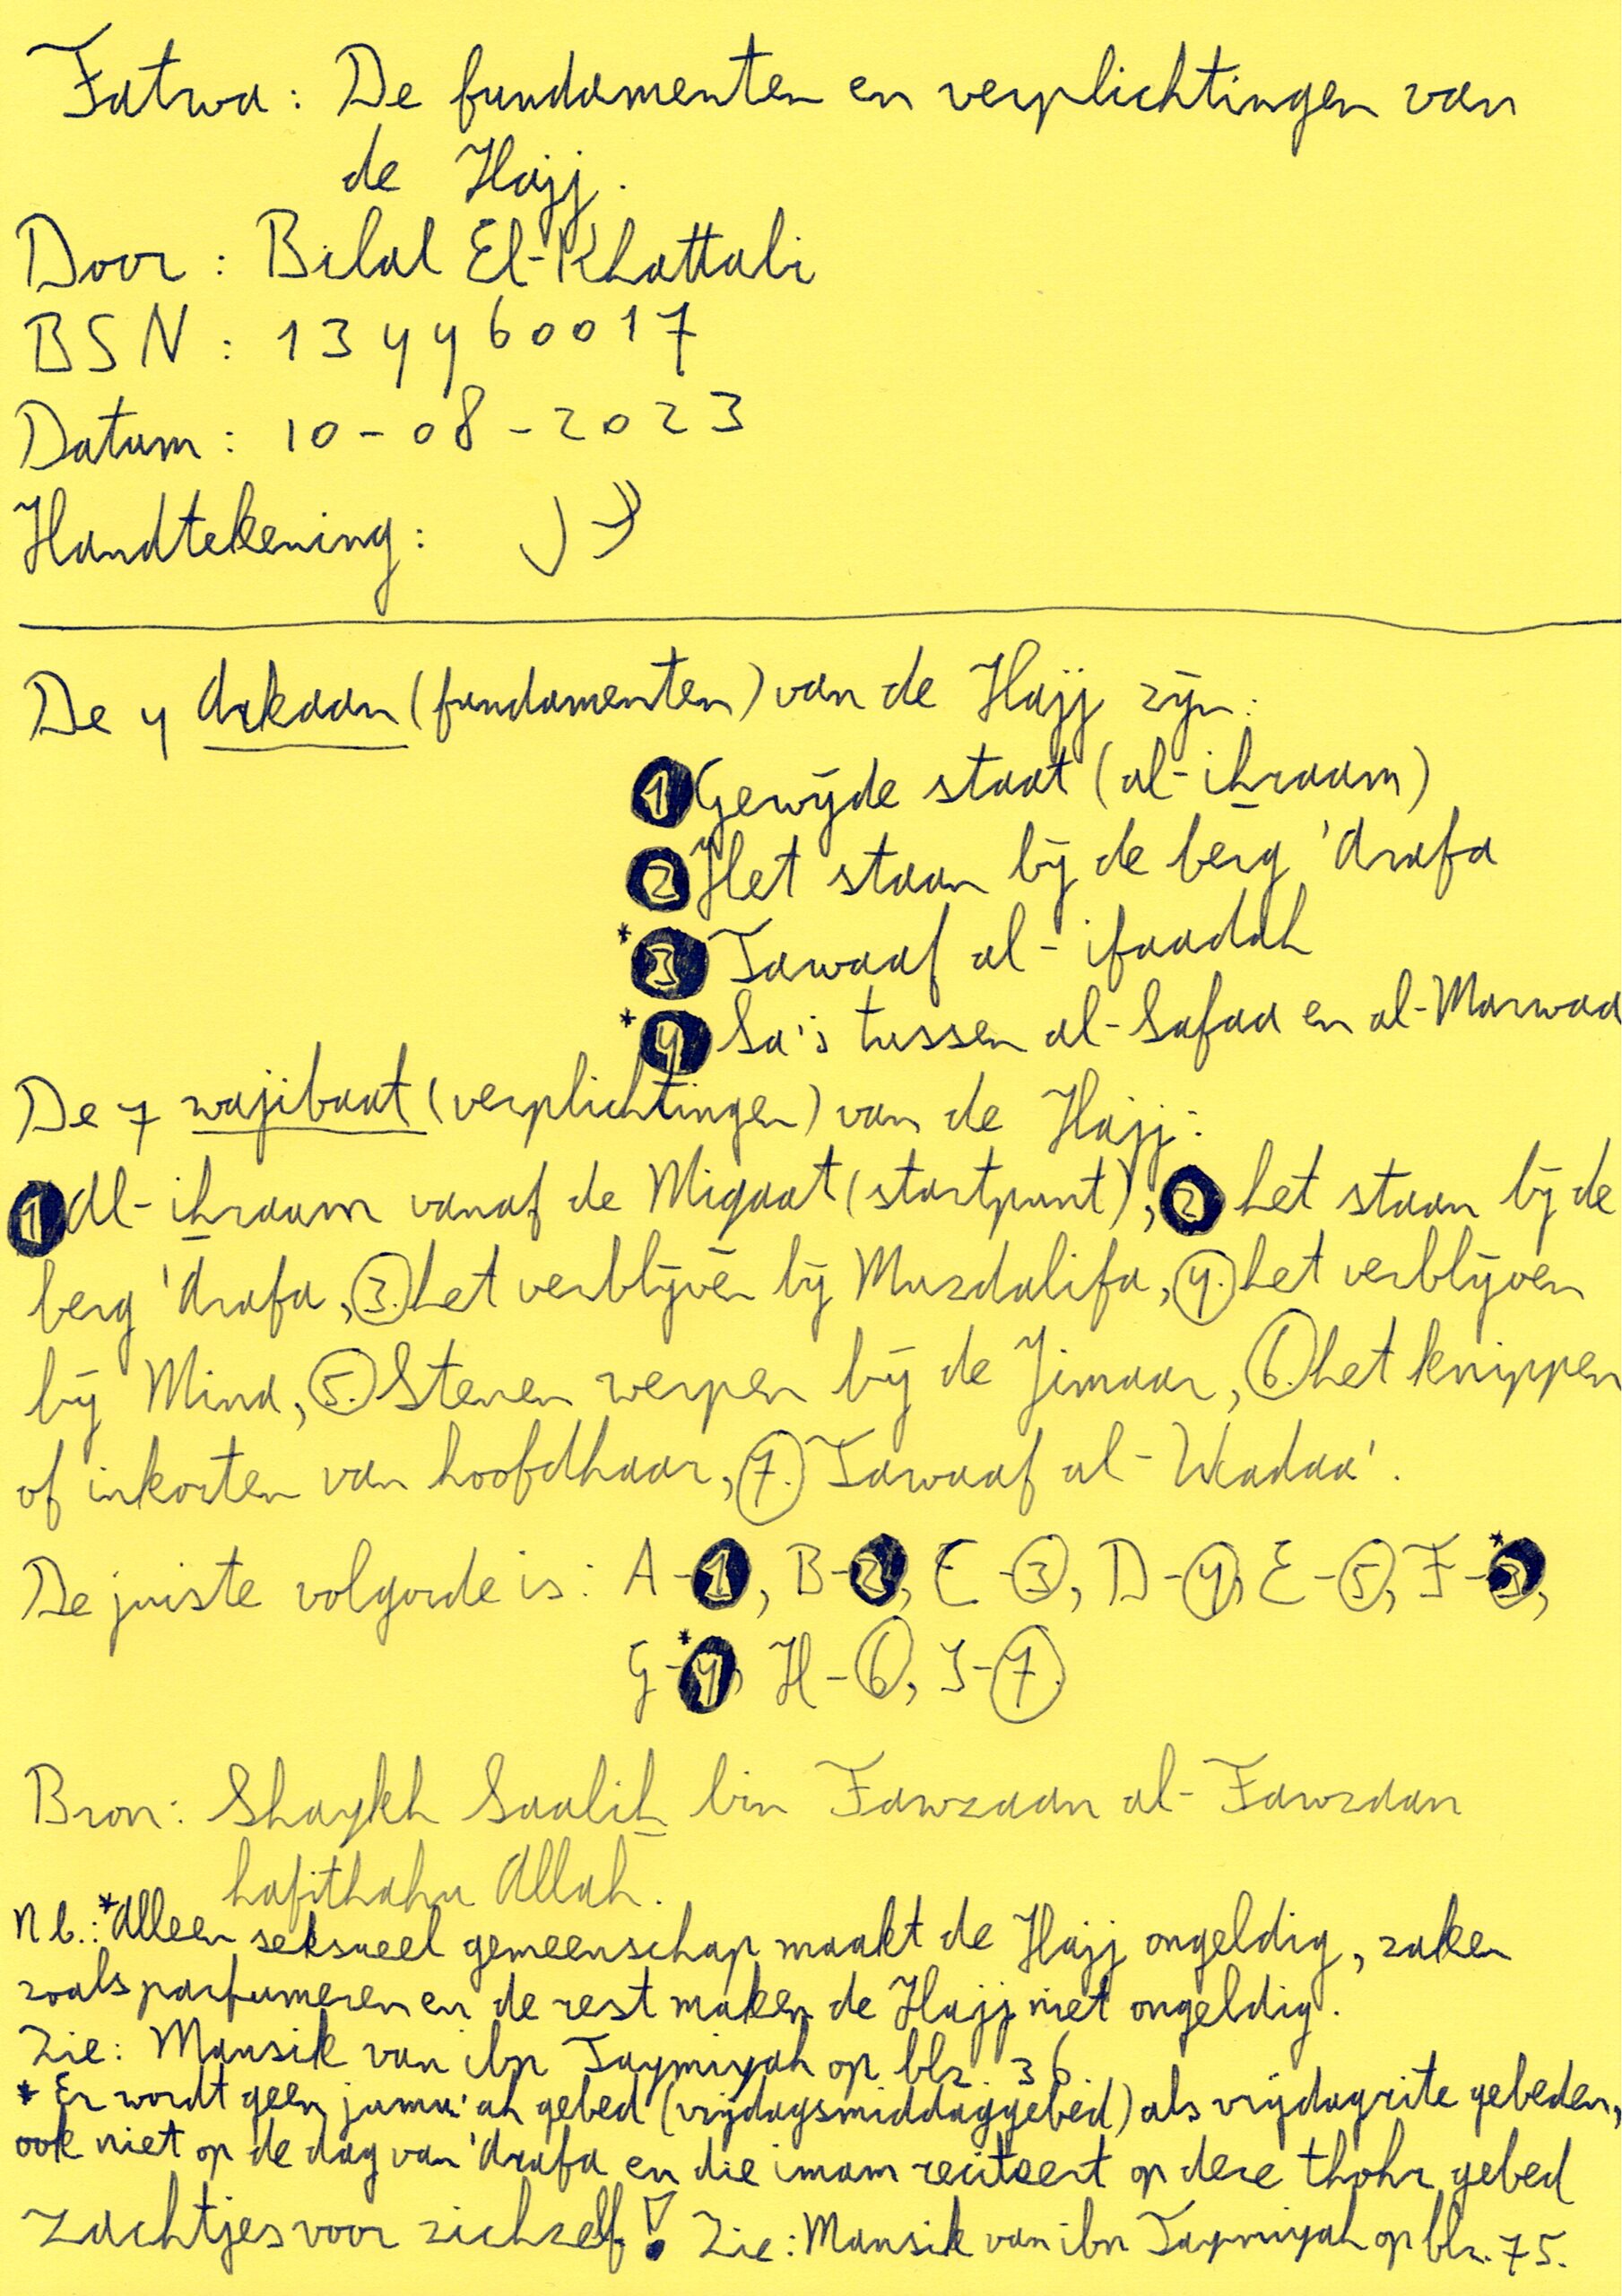 Fatwa: De fundamenten en verplichtingen van
de Hajj.
Door: Bilal El-Khattabi
BSN: 134460017
Datum: 10-08-2023
Handtekening:
De 4 Arkaan (fundamenten) van de Hajj zijn:
1 Gewijde staat (al-ihraam)
2 Het staan bij de berg 'Arafa
*3 Tawaaf al-ifaadah
*4 Sa'i tussen al-Safaa en al-Marwaa
De 7 wajibaat (verplichtingen) van de Hajj:
1 Al-ihraam vanaf de Miqaat (startpunt), 2 het staan bij de
berg 'Arafa, 3. het verblijven bij Muzdalifa, 4. het verblijven
bij Mina, 5. Stenen werpen bij de Jimaar, 6. het knippen
of inkorten van hoofdhaar, 7. Tawaaf al-Wadaa'.
De juiste volgorde is: A-1, B-2, C-3, D-4, E-5, F-*3,
G-*4, H-6, I-7.
Bron: Shaykh Saalih bin Fawzaan al-Fawzaan
hafithahu Allah.
N.b.: *Alleen seksueel gemeenschap maakt de Hajj ongeldig, zaken
zoals parfumeren en de rest maken de Hajj niet ongeldig.
Zie: Mansik van ibn Taymiyah op blz. 36.
* Er wordt geen jumu'ah gebed (vrijdagsmiddaggebed) als vrijdagrite gebeden,
ook niet op de dag van 'Arafa en die imam reciteert op deze thohr gebed
zachtjes voor zichzelf! Zie: Mansik van ibn Taymiyah op blz. 75.